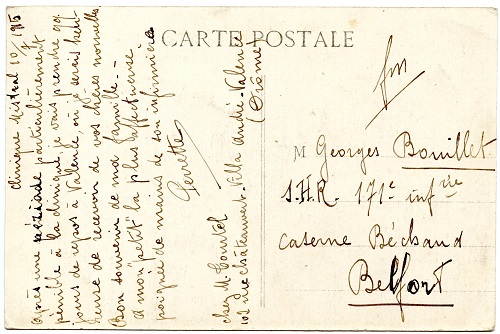 CARTE POSTALE
Clinique Mistral 10/7 1915
Après une période particulièrement
pénible à la clinique, je vais prendre qq
jours de repos à Valence, où je serais heu-
reuse de recevoir de vos chères nouvelles
Bon souvenir de ma famille. —
à mon "petit" la plus affectueuse
poignée de mains de son infirmière
Gevrette
chez M. Courtel
102 rue Châteauvert - Villa André - Valence
(Drôme)
fm
M Georges Bouillet
S.H.R. 171e infrie
Caserne Béchaud
Belfort